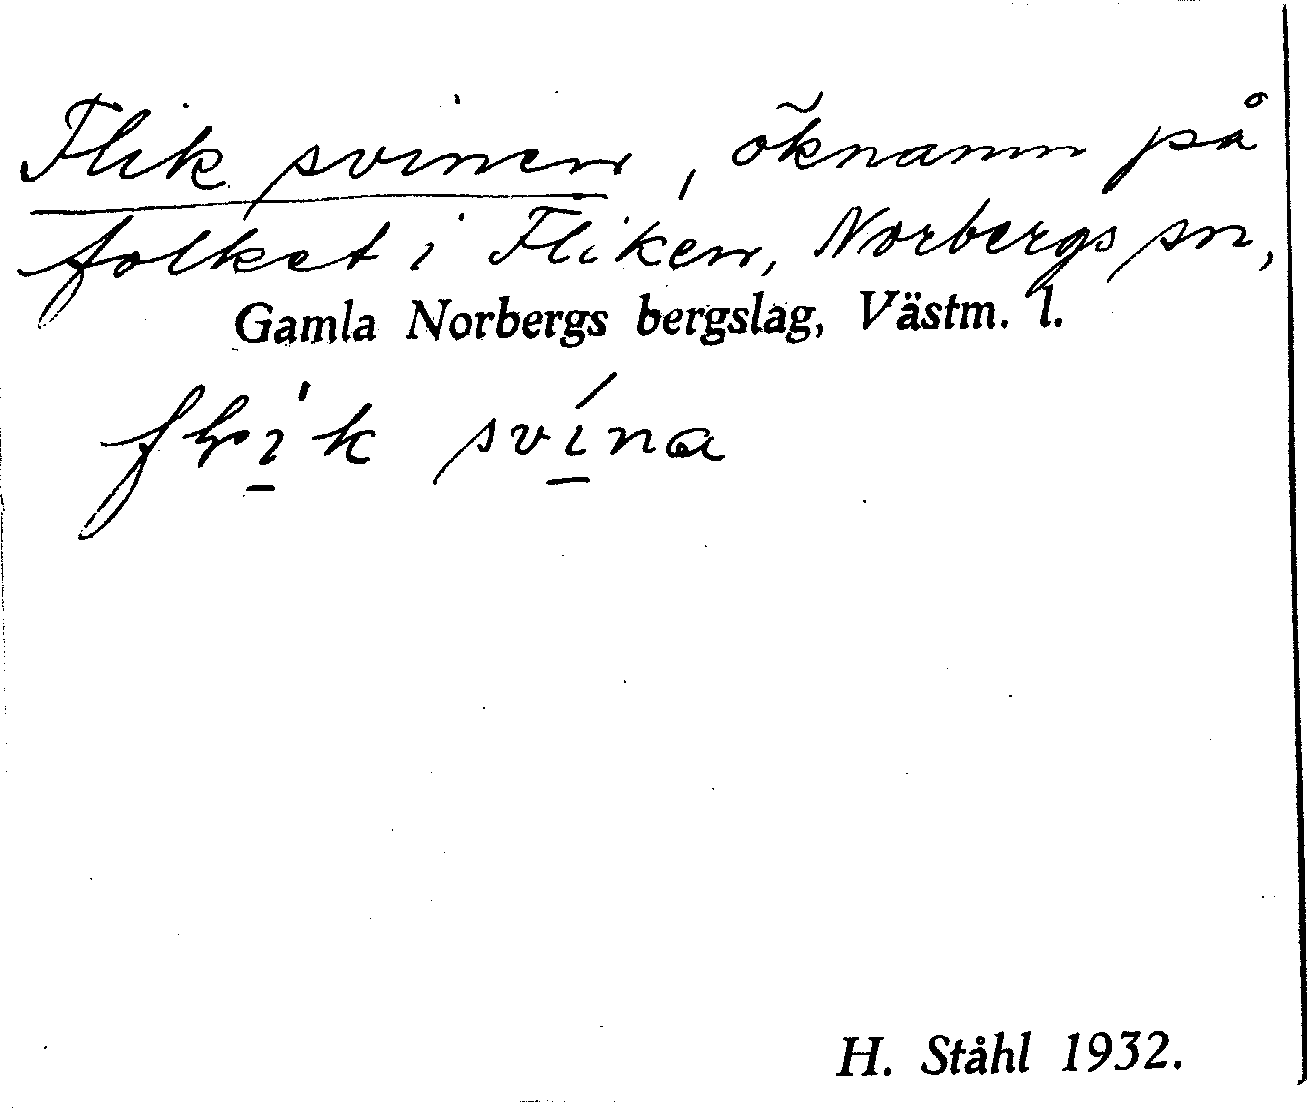 Flik svinen, öknamn på
folket i Fliken, Norbergs sn,
Gamla Norbergs bergslag, Västm. l.
svina
H. Ståhl 1932.